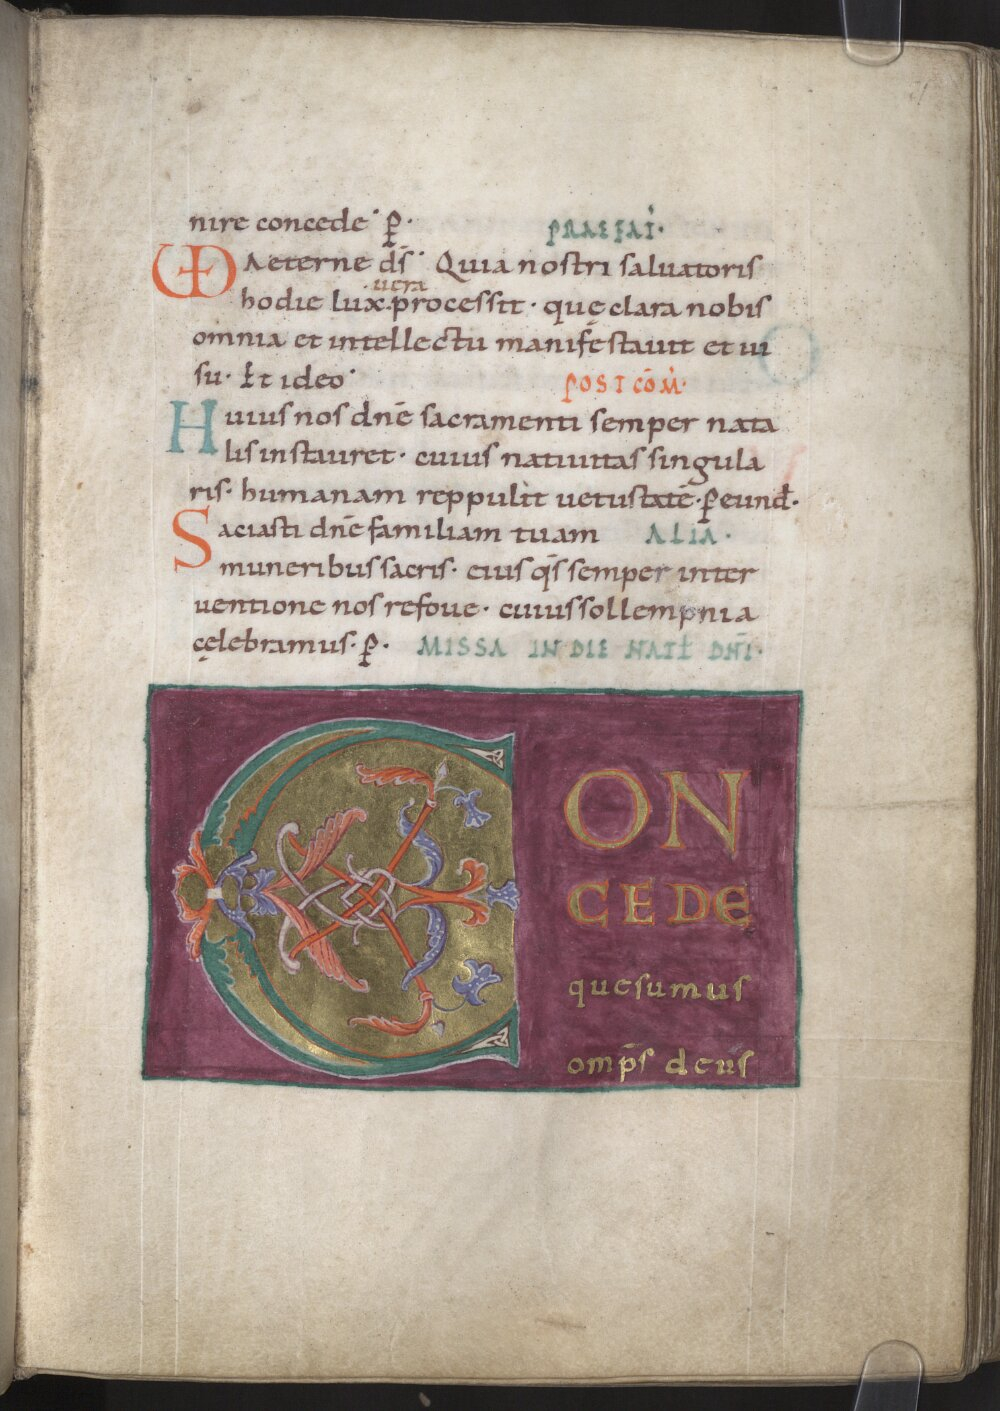 nire concede · p̲ · PRAEFAT̄ ·
VD Aeterne dš · Quia nostri saluatoris
· uera
hodie lux · processit · quę clara nobis
omnia et intellectu manifestauit et ui
su · Et ideo · POST COM̄ ·
Huius nos dnē sacramenti semper nata
lis instauret · cuius natiuitas singula
ris · humanam reppulit uetustatē · p̲ eund ·
Saciasti dnē familiam tuam ALIA ·
muneribus sacris · eius qs̄ semper inter
uentione nos refoue · cuius sollempnia
cęlebramus · p̲ · MISSA IN DIE NATL̄ DN̄I ·
CON
CEDE
quesumus
omp̄s deus